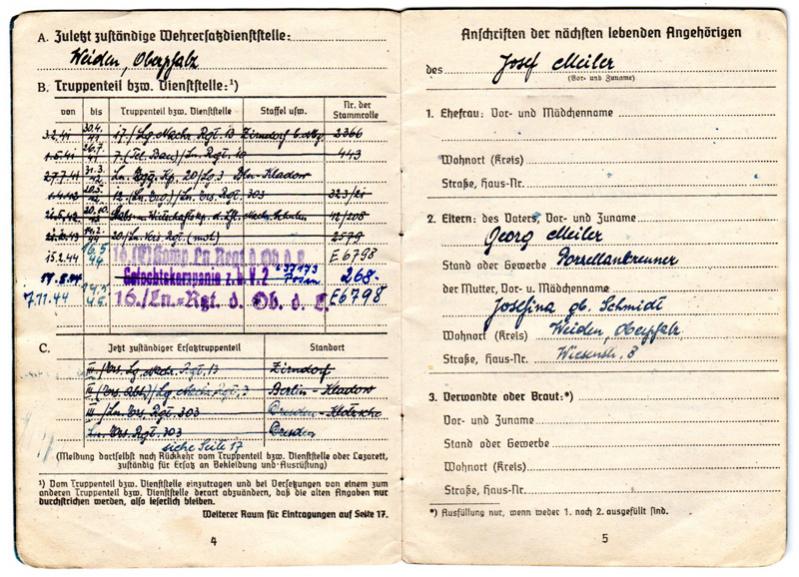 A. Zuletzt zuständige Wehrersatzdienststelle:
Weiden, Oberpfalz
B. Truppenteil bzw. Dienststelle:¹)
von bis Truppenteil bzw. Dienststelle Staffel usw. Nr. der Stammrolle
3.2.41 30.4.41 17./Lg. Nachr. Rgt. 13 Zirndorf 2366
1.5.41 26.7.41 7. (Tel. Bau)/Ln. Rgt. 10 443
27.7.41 31.3.42 20/Lg. 3 Bln-Kladow
1.4.42 303 323/21
12/208
2579
15.2.44 16.5.44 16. Komp. Ln. Regt d. Ob d. L. E 6798
Gefechtskompanie z. b. V. 2 268-
7.11.44 16./Ln.-Rgt. d. Ob. d. L. E 6798
C. Jetzt zuständiger Ersatztruppenteil Standort
III/Ers. Lg. Nachr. Rgt. 13 Zirndorf
Berlin-Kladow
III/Ln. Ers. Rgt. 303 Dresden-Klotzsche
Ln. Ers. Rgt. 303 Dresden
siehe Seite 17
(Meldung dortselbst nach Rückkehr vom Truppenteil bzw. Dienststelle oder Lazarett,
zuständig für Ersatz an Bekleidung und Ausrüstung)
¹) Vom Truppenteil bzw. Dienststelle einzutragen und bei Versetzungen von einem zum
anderen Truppenteil bzw. Dienststelle derart abzuändern, daß die alten Angaben nur
durchstrichen werden, also leserlich bleiben.
Weiterer Raum für Eintragungen auf Seite 17.
4
Anschriften der nächsten lebenden Angehörigen
des Josef Meiler
(Vor- und Zuname)
1. Ehefrau: Vor- und Mädchenname
Wohnort (Kreis)
Straße, Haus-Nr.
2. Eltern: des Vaters, Vor- und Zuname
Georg Meiler
Stand oder Gewerbe Porzellanbrenner
der Mutter, Vor- u. Mädchenname
Josefina gb. Schmidt
Wohnort (Kreis) Weiden, Oberpfalz
Straße, Haus-Nr. Wiesenstr. 8
3. Verwandte oder Braut:*)
Vor- und Zuname
Stand oder Gewerbe
Wohnort (Kreis)
Straße, Haus-Nr.
*) Ausfüllung nur, wenn weder 1. noch 2. ausgefüllt sind.
5